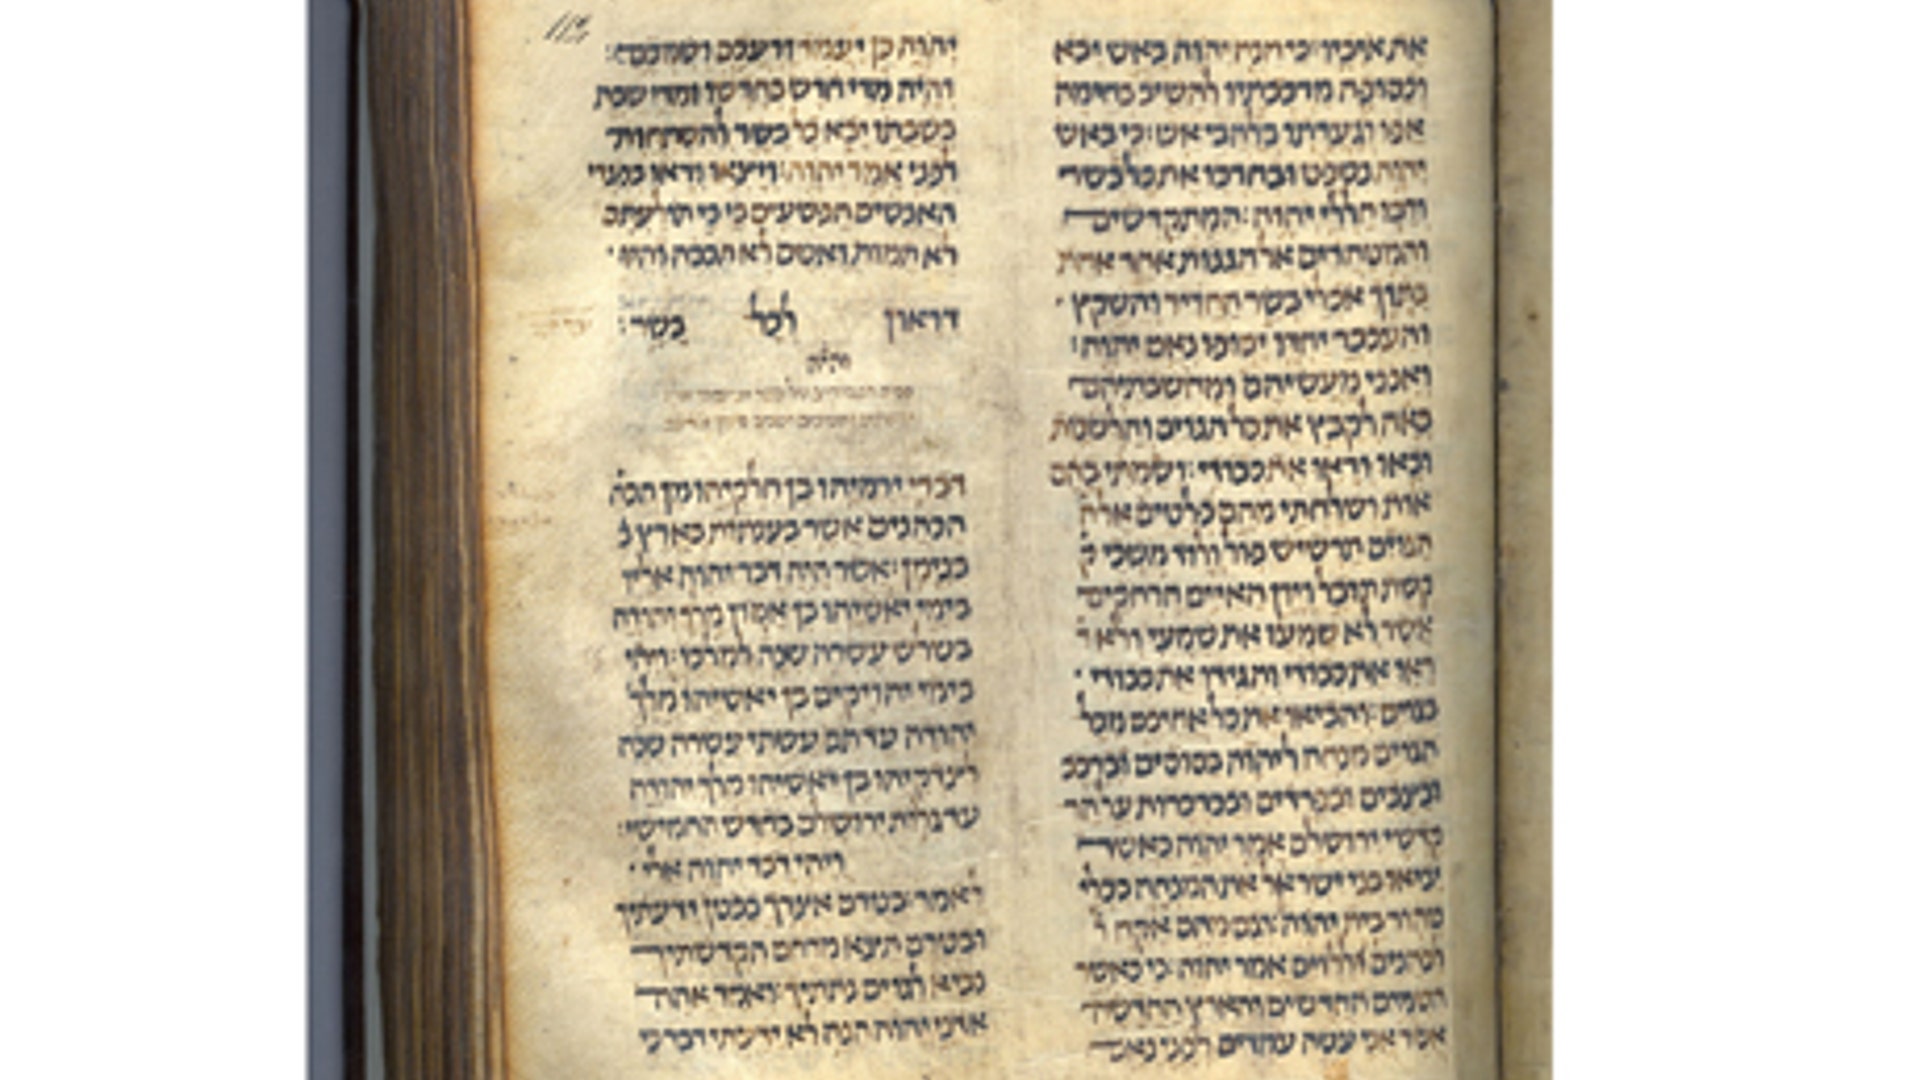 את איביו׃ כי הנה יהוה באש יבא
וכסופה מרכבתיו להשיב בחימה
אפו וגערתו בלהבי אש׃ כי באש
יהוה נשפט ובחרבו את כל בשר
ורבו חללי יהוה׃ המתקדשים
והמטהרים אל הגנות אחר אחת
בתוך אכלי בשר החזיר והשקץ
והעכבר יחדו יספו נאם יהוה׃
ואנכי מעשיהם ומחשבתיהם
באה לקבץ את כל הגוים והלשנות
ובאו וראו את כבודי׃ ושמתי בהם
אות ושלחתי מהם פלטים אל ה
הגוים תרשיש פול ולוד משכי ק
קשת תובל ויון האיים הרחקים
אשר לא שמעו את שמעי ולא ר
ראו את כבודי והגידו את כבודי
בגוים׃ והביאו את כל אחיכם מכל
הגוים מנחה ליהוה בסוסים וברכב
ובצבים ובפרדים ובכרכרות על הר
קדשי ירושלם אמר יהוה כאשר
יביאו בני ישראל את המנחה בכלי
טהור בית יהוה׃ וגם מהם אקח ל
לכהנים ללוים אמר יהוה׃ כי כאשר
השמים החדשים והארץ החדשה
אשר אני עשה עמדים לפני נאם
יהוה כן יעמד זרעכם ושמכם׃
והיה מדי חדש בחדשו ומדי שבת
בשבתו יבא כל בשר להשתחות
לפני אמר יהוה׃ ויצאו וראו בפגרי
האנשים הפשעים בי כי תולעתם
לא תמות ואשם לא תכבה והיו
דראון ולכל בשר׃
דברי ירמיהו בן חלקיהו מן הכה
הכהנים אשר בענתות בארץ ב
בנימן׃ אשר היה דבר יהוה אליו
בימי יאשיהו בן אמון מלך יהודה
בשלש עשרה שנה למלכו׃ ויהי
בימי יהויקים בן יאשיהו מלך
יהודה עד תם עשתי עשרה שנה
לצדקיהו בן יאשיהו מלך יהודה
עד גלות ירושלם בחדש החמישי׃
ויהי דבר יהוה אלי
לאמר׃ בטרם אצרך בבטן ידעתיך
ובטרם תצא מרחם הקדשתיך
נביא לגוים נתתיך׃ ואמר אהה
אדני יהוה הנה לא ידעתי דבר כי